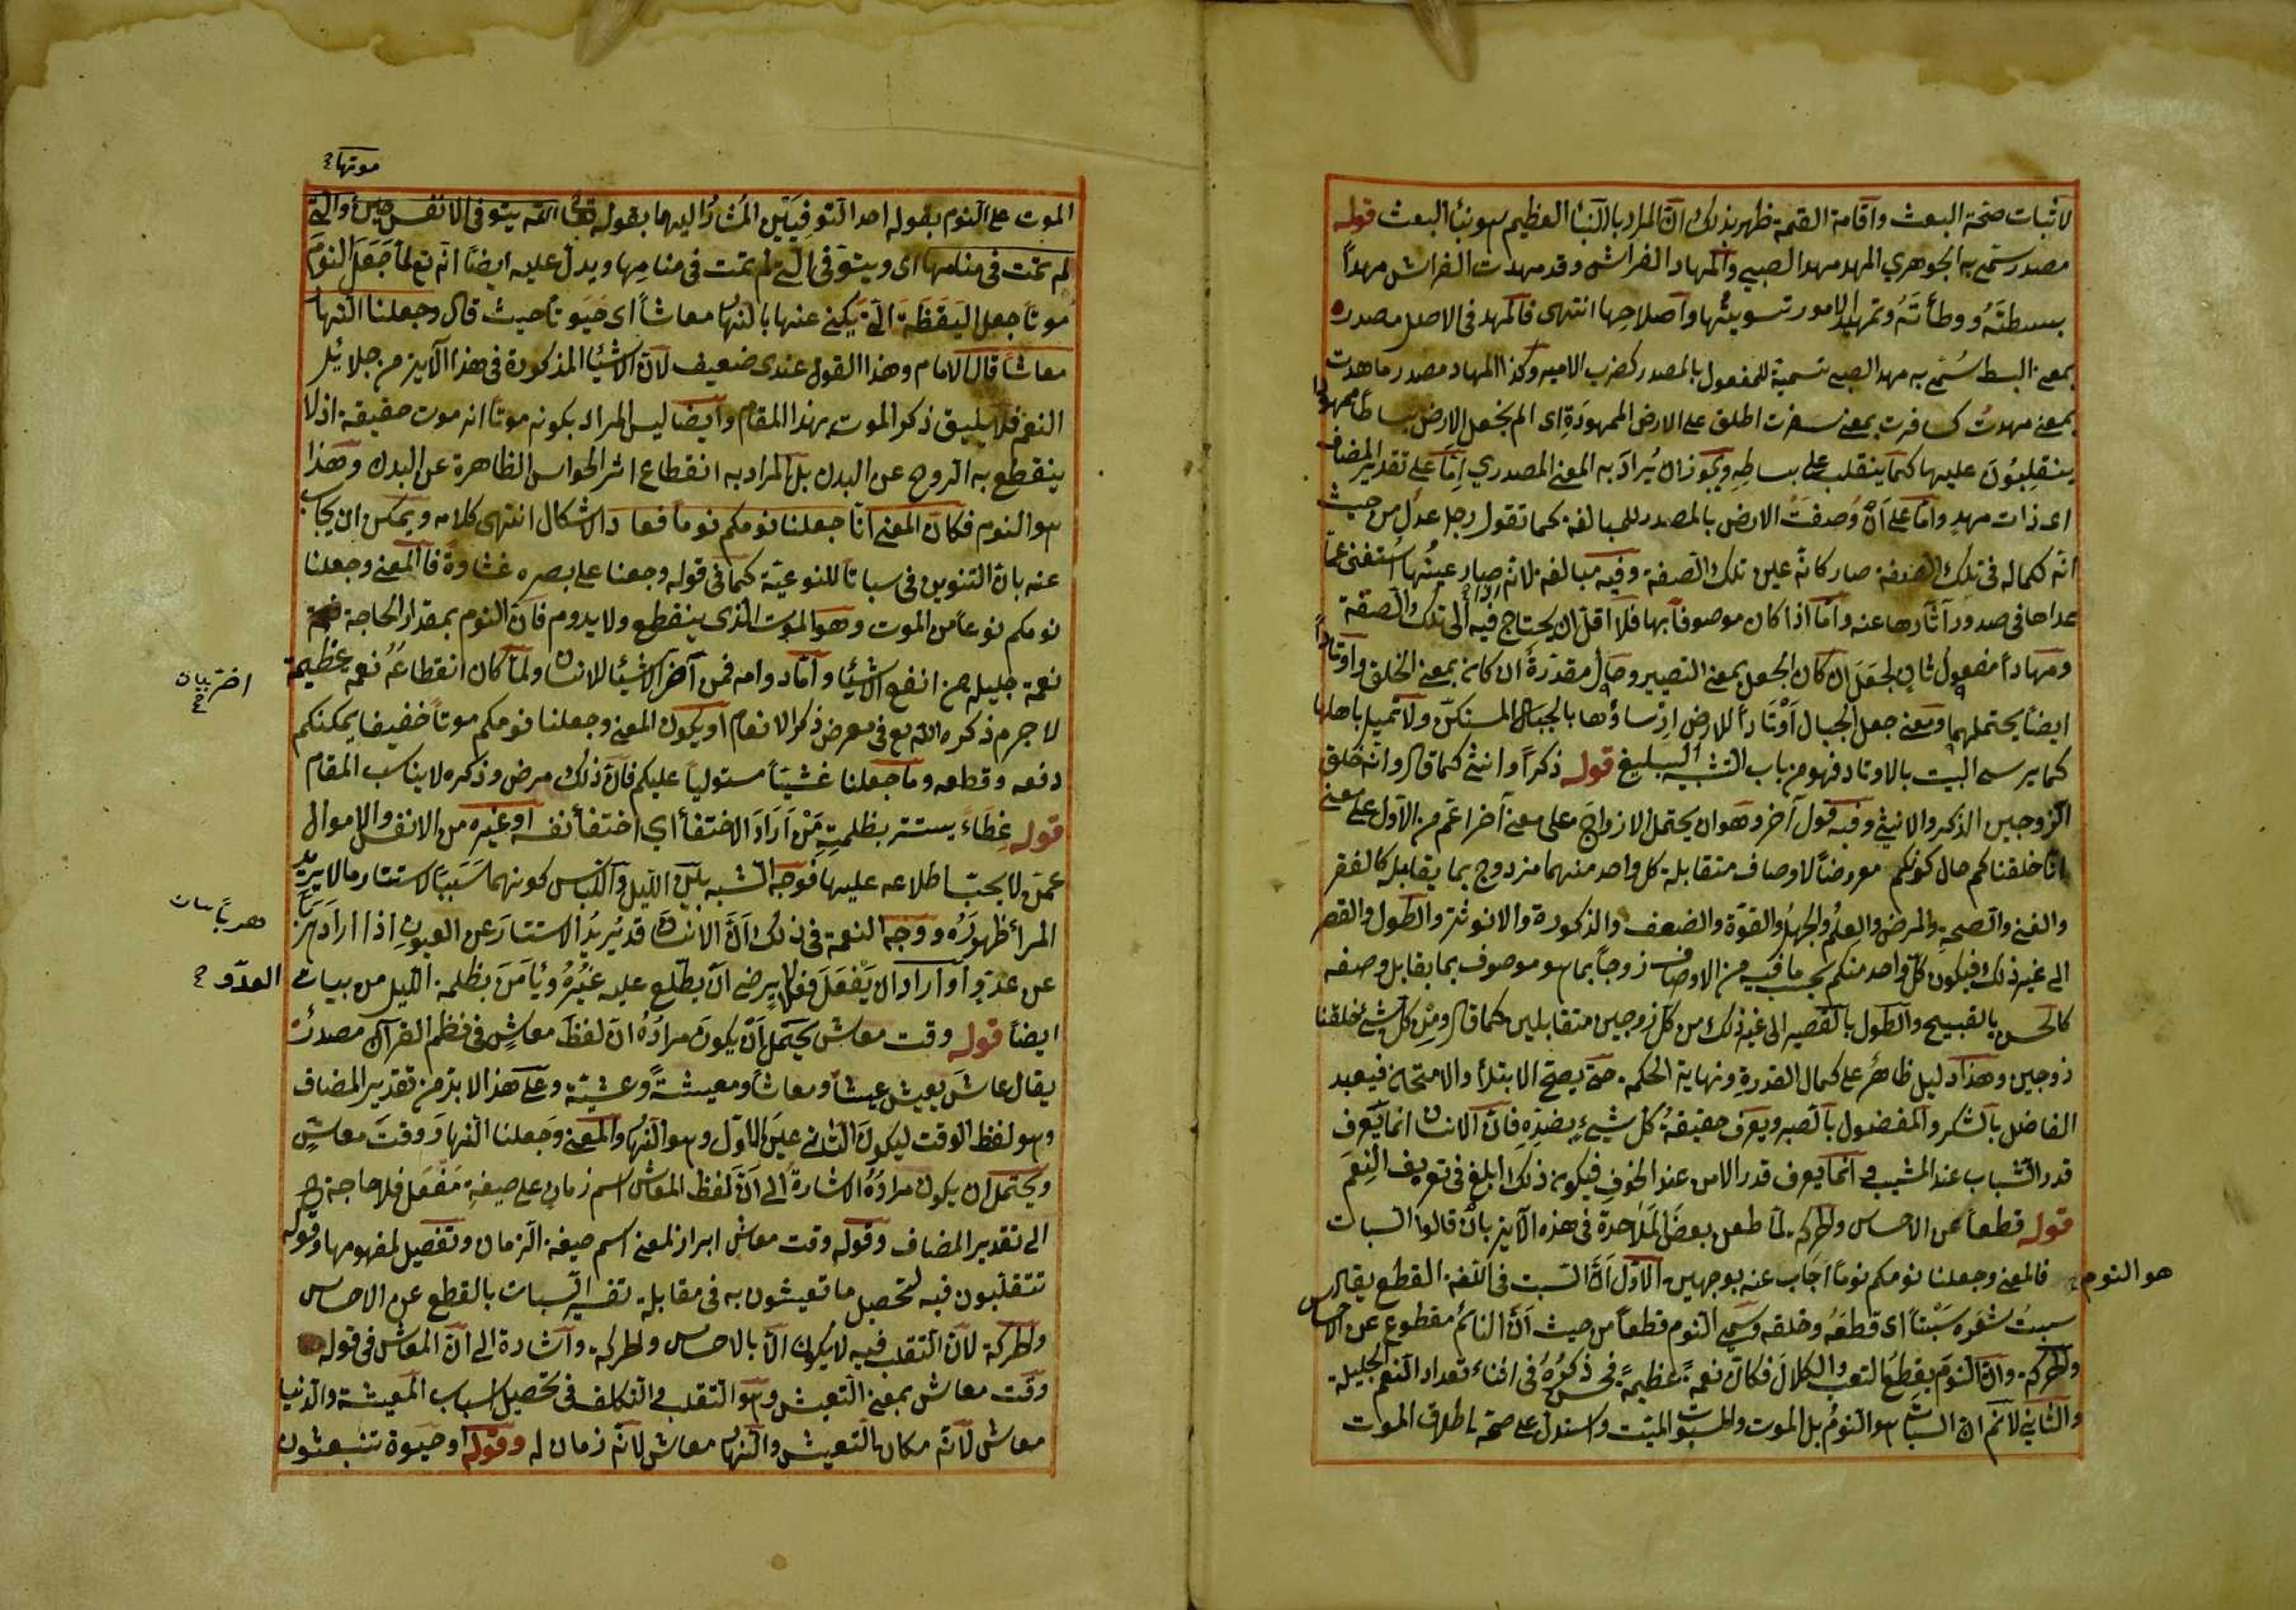 لاثبات صحة البعث واقامة القيمة ظهر بذلك ان المراد بالنبأ العظيم هو نبأ البعث قوله
مصدر سمّى به الجوهري المهد مهد الصبي والمهاد الفراش وقد مهدت الفراش مهداً
بسطتَهُ ووطأتَهُ وتمهيد الامور تسويتها واصلاحها انتهى فالمهد فى الاصل مصدر
بمعنى البسط سُمّى به مهد الصبى تسمية للمفعول بالمصدر كضرب الامير وكذا المهاد مصدر ماهدت
بمعنى مهدتُ كسافرت بمعنى سفرت اطلق على الارض الممهودَةِ اى الم نجعل الارض بساطاً ممهوداً
ينقلبُونَ عليها كما ينقلب على بساطِهِ ويجوز ان يُرادَ به المعنى المصدري إمّا على تقدير المضاف
اى ذات مهدٍ وامّا على أن وُصفَتُ الارض بالمصدر للمبالغة كما تقول رجل عدل من حيث
انه لكماله فى تلك الصفة صار كانّه عين تلك الصفة وفيه مبالغة لانّه اذا صار عينُها استغنى عمّا
عداها فى صدور آثارها عنه وامّا اذا كان موصوفاً بها فلا اقل ان يحتاج فيه الى تلك الصفة
ومهاداً مفعول ثانٍ لجعَلَ ان كان الجعل بمعنى التصيير وحال مقدّرةً ان كان بمعنى الخلق واوتاداً
ايضاً يحتملهما ومعنى جعل الجبال أَوْتَاداً للارض ارْساؤها بالجبال لتسكنَ ولا تميل باهلها
كما يرسى البيت بالاوتاد فهو من باب التشبيه البليغ قوله ذكراً وانثى كما قال وانّه خلق
الزوجين الذكر والانثى وفيه قول آخر وهو ان يحتمل الازواج على معنى آخر اعَم من الاول على معنى
انّا خلقناكم حال كونكم معروضاً لاوصاف متقابلة كل واحد منهما مزدوج بما يقابله كالفقر
والغنى والصحةِ والمرض والعِلمُ والجهلُ والقوّة والضعف والذكورة والانوثة والطول والقصر
الى غير ذلك فيكون كل واحد منكم بحسب ما فيه من الاوصاف زوجاً بما هو موصوف بما يقابل وصفه
كالحسن بالقبيح والطول بالقصير الى غير ذلك من كل زوجين متقابلين كما قال ومِنْ كل شئ خلقنا
زوجين وهذا دليل ظاهرٌ على كمال القدرةِ ونهاية الحكمة حتّى يصحّ الابتلاء والامتحان فيعبد
الفاضل بالشكر والمفضول بالصبر ويعرف حقيقةُ كل شيءٍ بضدِهِ فانّ الانسان انّما يَعرف
قدر الشّباب عند المشيب وانما يعرف قدر الامن عند الخوفِ فيكون ذلك ابلغ فى تعريف النِعَم
قوله قطعاً عن الاحساس والحركة لمّا طعن بعضُ المَلاحدة فى هذه الآية بانْ قالوا السبات
هو النوم فالمعنى وجعلنا نومكم نوماً اجَاب عنه بوجهين الاوّل أنّ السّبت فى اللغة القطع يقال
سبتُ شعَره سَبْتاً اى قطعَهُ وحلقه وسمّى النوم قطعاً من حيث انّ النائمُ مقطوع عن الاحساس
والحركة وانّ النوَم يقطعُ التعب والكلالَ فكانّ نعمةً عظيمةً فحسن ذكرُهُ فى اثناء تعداد النعم الجليلة
والثانى لا نَم انّ السبات هو النومُ بل الموت والمسبوت الميت واستدل على صحّة اطلاق الموت
موتها
الموت على النوم بقوله احد التوفيَتين المُشارُ اليهما بقوله تعالى الله يتوفى الانفس حين والتى
لم تمت فى منامها اى ويتوفى التى لم تمت فى منامِها ويدل عليه ايضاً انّه تع لمّا جَعَل النوَم
موتاً جعل اليَقَظَة التى يكنى عنها بالنهار معاشاً اى حَيَوتاً حيث قال وجعلنا النها
معاشاً قال الامام وهذا القول عندى ضعيف لانّ الاشيُا المذكورة فى هذا الآية من جلائل
النعم فلا يليق ذكر الموت بهذا المقام وايضاً ليس المراد بكونه موتاً انه موت حقيقة اذ لا
ينقطع به الروح عن البدن بل المراد به انقطاع اثر الحواس الظاهرة عن البدن وهذا
هو النوم فكان المعنى انّا جعلنا نومكم نوماً فعاد الاشكال انتهى كلامه ويمكن ان يجاب
عنه بان التنوين فى سباتاً للنوعيّة كما فى قوله وجعنا على بصره غشاوةً فالمعنى وجعلنا
نومكم نوعاً من الموت وهو الموت الذى ينقطع ولا يدوم فانّ النوم بمقدار الحاجة
نعمة جليلة من انفع الاشيُا وامّا دوامه فمن اضر الاشيُا للانسان ولمّا كان انقطاعَهُ نعمة عظيمة
لا جرم ذكره الله تع فى معرض ذكر الانعام او يكون المعنى وجعلنا نومكم موتاً خفيفا يمكنكم
دفعه وقطعه وما جعلنا غشيّاً مستولياً عليكم فانّ ذلك مرض وذكره لا يناسب المقام
قوله غِطَاءً يستتر بظلمتِهِ مَنْ اَرَادَ الاختفأ اي اختفأ نفسه او غيره من الانفس والاموال
عمّن لا يحبّ اطلاعه عليها فوجه الشبه بين الليل واللباس كونهما سَبَباً لاستتار ما لا يريد
المرأ ظهورَهُ ووجه النعمة فى ذلك انّ الانسان قد يُريدُ الاستتارَ عن العيونِ اذا ارادَ هرَبًا
عن عدوٍّ أو أراد ان يَفعَلَ فعلا لا يرضى انّ يطّلع عليه غَيْرُهُ ويأمَنَ بظلمة الليل من بيات
العدوّ
ايضاً قوله وقت معاش يحتمل أنْ يكونَ مرادُهُ انّ لفظَ معاشٍ فى نظم القرآن مصدرٌ
يقال عاشَ يعيش عيشاً ومعاشاً ومعيشةً وعشيّة وعلى هذا لا بدّ من تقدير المضاف
وهو لفظ الوقت ليكونَ الثانى عينَ الاوّل وهو النّهار والمعنى وجعلنا النّهارَ وقتَ معاشٍ
ويحتمل ان يكون مرادُهُ الاشارةُ الى انّ لفظ المعاش اسم زمانٍ على صيغةِ مَفْعَل فلا حاجة ح
الى تقدير المضاف وقوله وقت معاش ابراز لمعنى اسم صيغة الزمان وتفصيل لمفهومها وقوله
تتقلبون فيه لتحصيل ما تعيشون به فى مقابلة تفسير السّبات بالقطع عن الاحساس
والحركة لانّ التقلب فيه لا يكون الّا بالاحساس والحركة واشارة الى انّ المعاش فى قوله
وقت معاش بمعنى التعيش وهو التقلب والتكلف فى تحصيل اسباب المعيشة والدّنيا
معاش لانّه مكان التعيش والنّهار معاش لانّه زمان له وقوله او حيوة تنبعثون